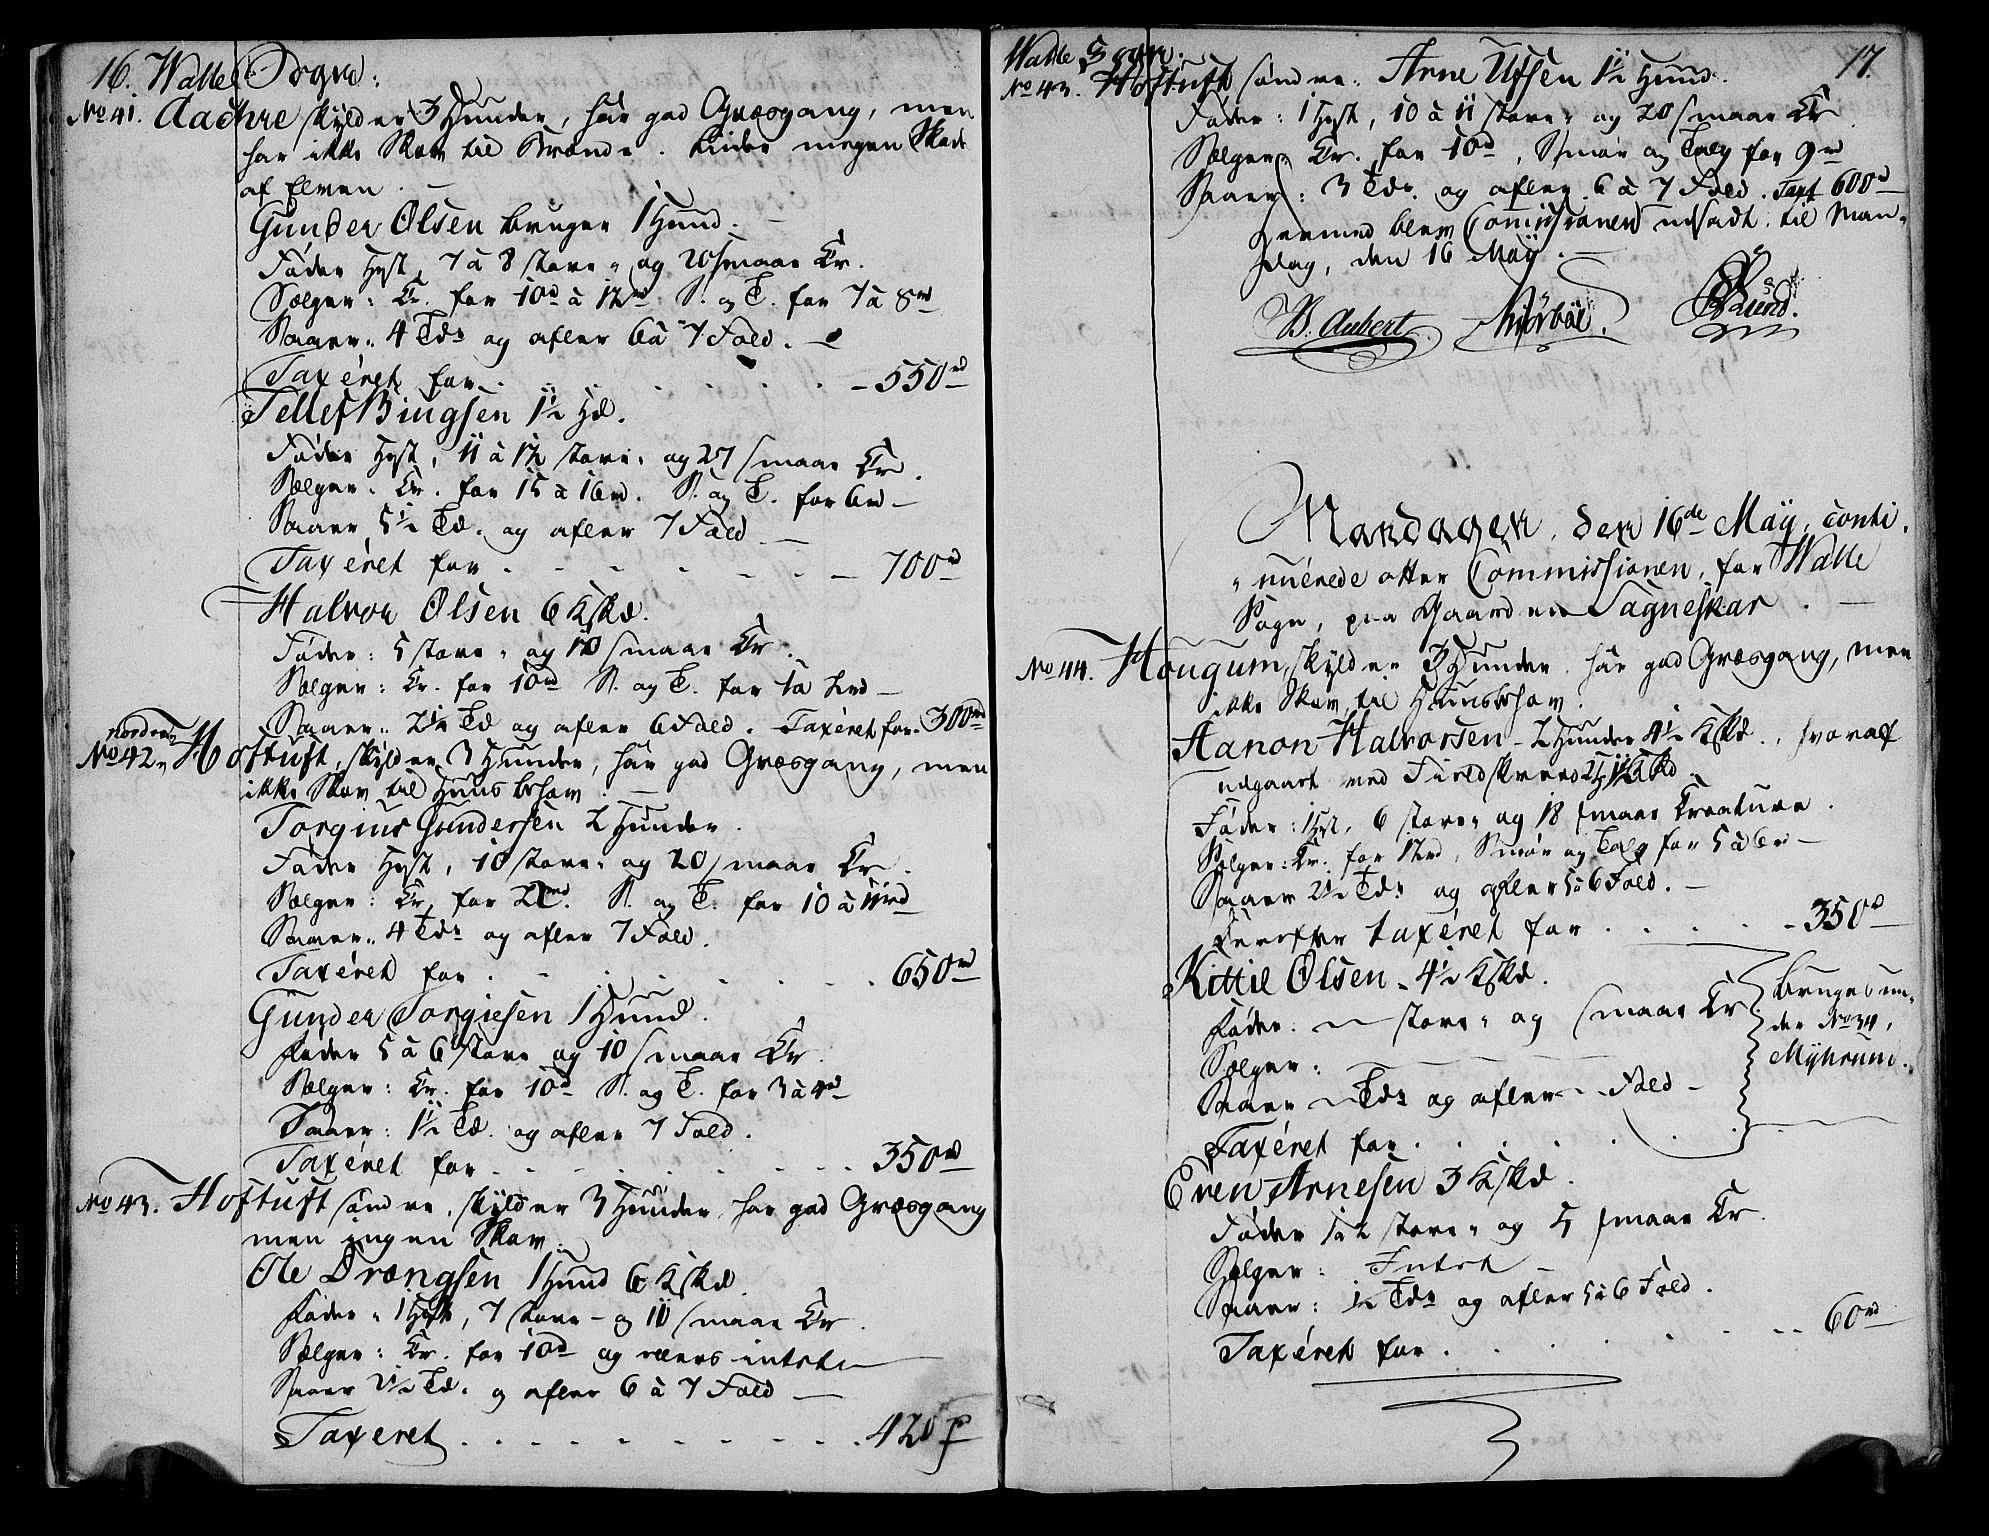 16. Walle Sogn:
No 41. Aachre skylder 3 Hunder, har god Græsgang, men
har ikke Skov til Brænde. Lider megen Skade
af Elven. —
Gunder Olsen bruger 1 Hund. —
Føder Hest, 7 à 8 store- og 20 smaae Cr.
Sælger: Cr. for 10rd à 12rd S. og T. for 7 à 8rd
Saaer: 4 Tdr og afler 6 à 7 Fold. —
Taxéret for . . . . . . . – 550rd
Tellef Biugsen 1½ Hd.
Føder Hest, 11 à 12 store- og 27 smaae Cr.
Sælger: Cr. for 15 à 16rd. S. og T. for 6rd —
Saaer 5½ Td. og afler 7 Fold —
Taxéret for . - - - - - - — 700rd
Halvor Olsen 6 Kskd.
Føder: 5 store- og 10 smaae Cr.
Sælger: Cr. for 10rd S. og T. for 1 à 2rd —
Saaer: 2½ Td og afler 6 Fold. Taxéret for 300rd
nordre
No 42. Hoftuft, skylder 3 Hunder, har god Græsgang, men
ikke Skov til Huusbehov. —
Torgius Gundersen 2 Hunder.
Føder Hest, 10 store- og 20 smaae Cr.
Sælger: Cr. for 20rd. S. og T. for 10 à 11rd
Saaer: 4 Tdr og afler 7 Fold.
Taxéret for . - . . - . . . 650rd
Gunder Torgiesen 1 Hund.
Føder 5 à 6 store og 10 smaae Cr.
Sælger: Cr. for 10rd S. og T. for 3 à 4rd
Saaer: 1½ Td. og afler 7 Fold.
Taxéret for . - - . . - - . . 350rd
No 43. Hoftuft søndre, skylder 3 Hunder, har god Græsgang
men ingen Skov.
Ole Drengsen 1 Hund 6 Kskd.
Føder 1 Hest, 7 store- og 10 smaae Cr.
Sælger: Cr. for 10rd og videre intet —
Saaer 2½ Td. og afler 6 à 7 Fold —
Taxeret . . . . . . . . . . 420
Walle Sogn. 17.
No 43. Hoftuft søndre. Arne Ufsen 1½ Hund.
Føder: 1 Hest, 10 à 11 store- og 20 smaae Cr
Sælger: Cr. for 10rd, Smør og Talg for 9rd
Saaer: 3 Tdr. og afler 6 à 7 Fold. Taxt 600rd
Hermed blev Commissionen udsadt til Man-
dag, den 16 Maÿ. —
B. Aubert
Mandagen, den 16de Maÿ, conti-
nuérede atter Commissionen, for Walle
Sogn, paa Gaarden Sagneskar. —
No 44. Hougum, skylder 3 Hunder, har god Græsgang, men
ikke Skov til Huusbehov.
Aanon Halvorsen - 2 Hunder 4½ Kskd., hvoraf
udgaaet ved
Føder: 1 Hest, 6 store- og 18 smaae Creature.
Sælger: Cr. for 12rd, Smør og Talg for 5 à 6rd —
Saaer 2½ Tdr og afler 5 à 6 Fold. —
Derefter taxéret for . . . . . - 350rd
Kittil Olsen - 4½ Kskd.
Føder: — store- og smaae Cr
Sælger: —
Saaer — Tdr og afler - - Fold —
Taxéret for . . . . .
Bruges un-
der No 34,
Mÿhrum.
Even Arnesen 3 Kskd.
Føder 1 à 2 store- og 5 smaae Cr.
Sælger: Intet —
Saaer: ½ Tdr og afler 5 à 6 Fold.
Taxéret for . . . . . - - 60rd